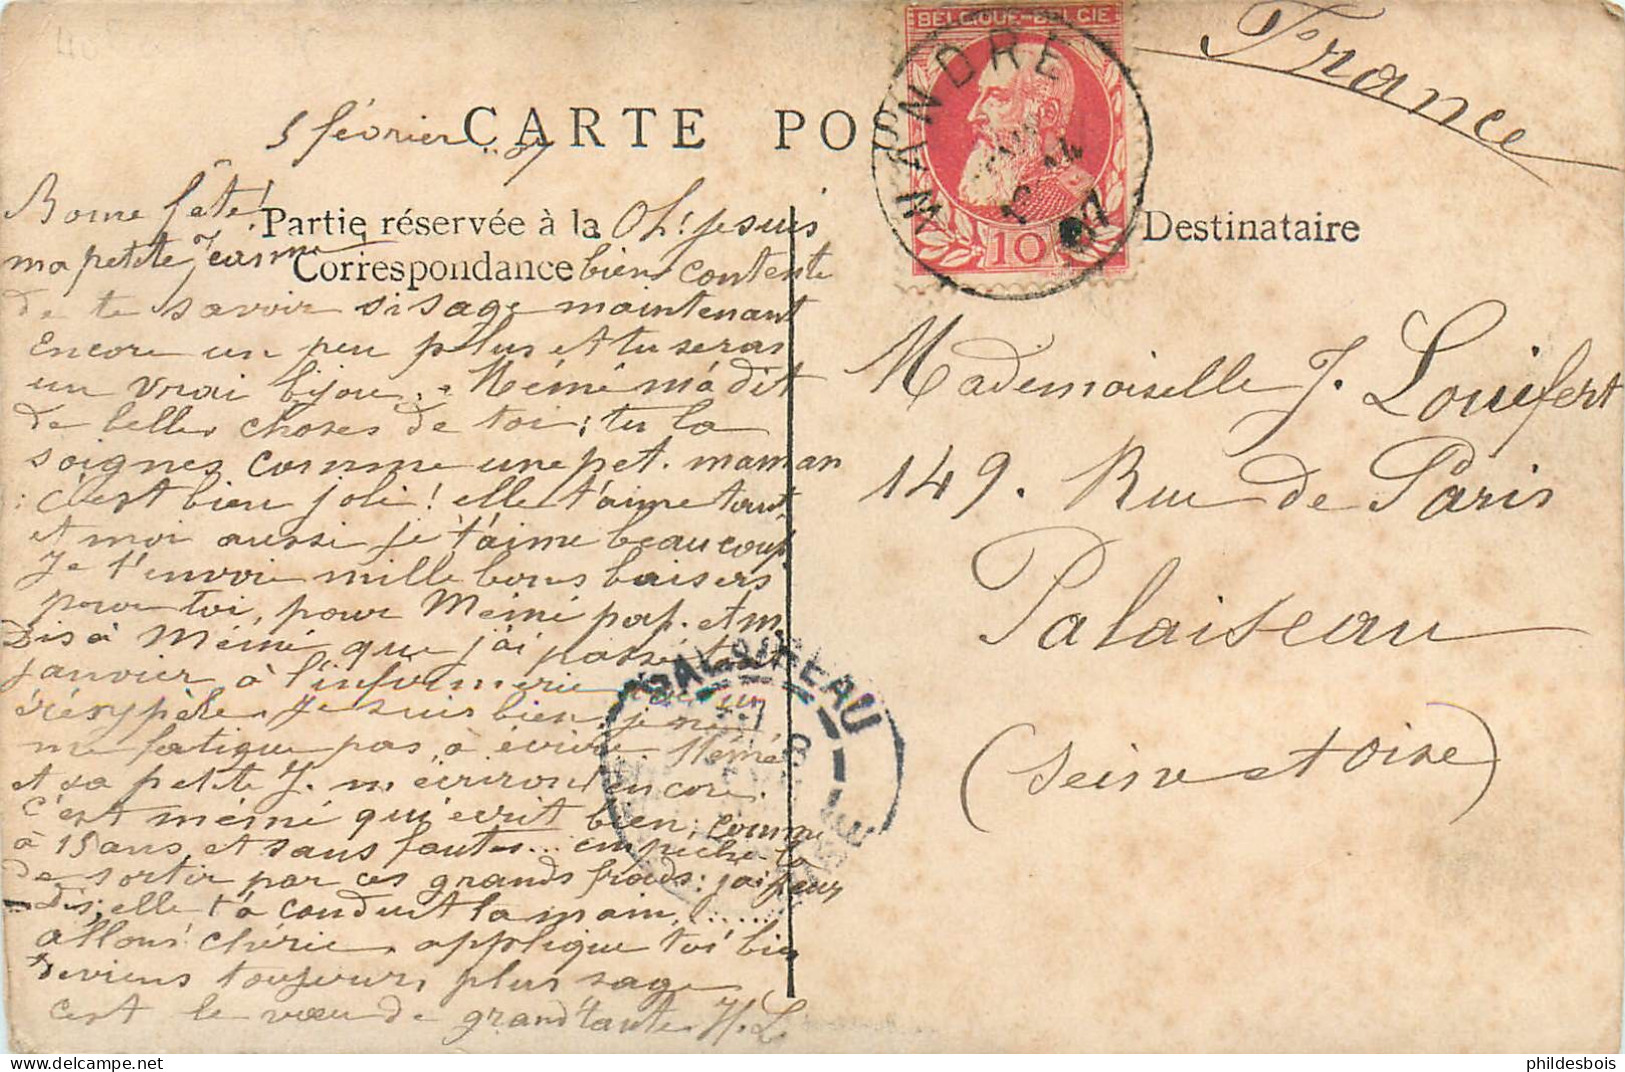 5 février 07
CARTE PO
BELGIQUE-BELGIE
WANDRE
10
07
France
Partie réservée à la
Correspondance
Destinataire
Bonne fête!
ma petite Jeanne
Oh! je suis
bien contente
de te savoir si sage maintenant
encore un peu plus et tu seras
un vrai bijou. Mémé m'a dit
de belles choses de toi; tu la
soignes comme une pet. maman
: c'est bien joli! elle t'aime tant
et moi aussi je t'aime beaucoup
Je t'envoie mille bons baisers
pour toi, pour Mémé pap. et m.
Dis à Mémé que j'ai passé tout
janvier à l'infirmerie avec un
érésypèle. Je suis bien, je ne
me fatigue pas à écrire. Mémé
et sa petite J. m'écriront encore.
c'est mémé qui écrit bien, comme
à 15 ans, et sans fautes... empêche-la
de sortir par ces grands froids: j'ai peur
Dis, elle t'a conduit la main.......
allons chérie, applique toi bien
deviens toujours plus sage
c'est le vœu de grand'tante H. L.
Mademoiselle J. Louifert
149. Rue de Paris
Palaiseau
(Seine et Oise)
PALAISEAU